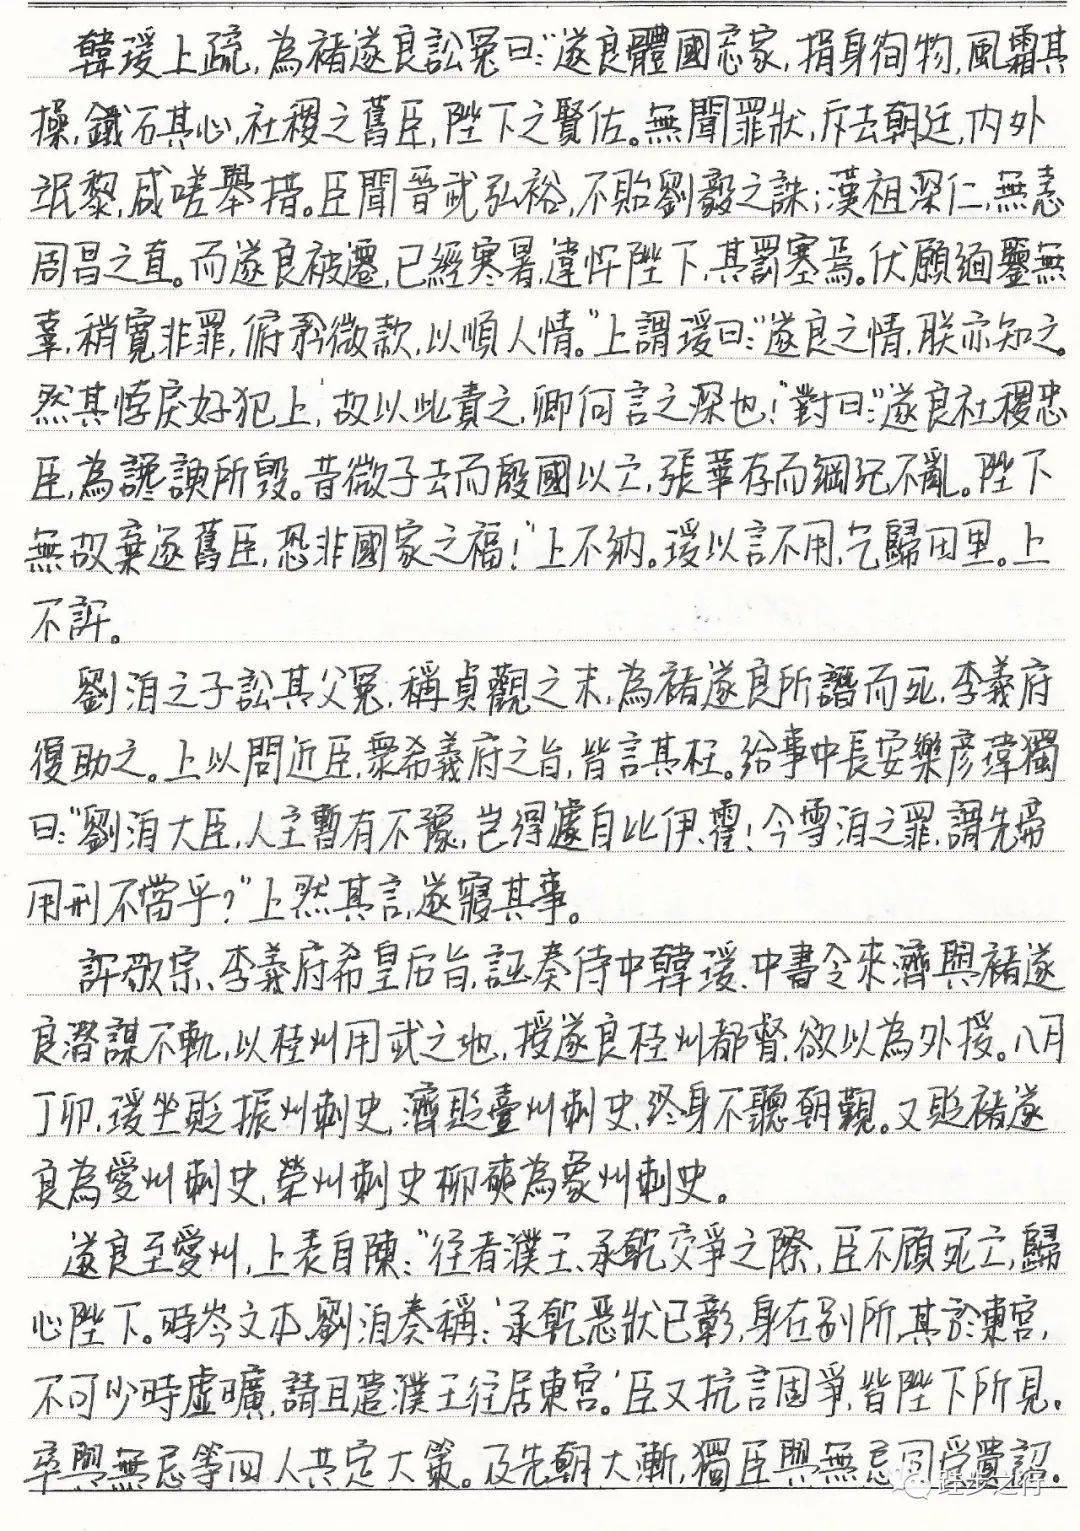 韓瑗上疏，為褚遂良訟冤曰：“遂良體國忘家，捐身徇物，風霜其
操，鐵石其心，社稷之舊臣，陛下之賢佐。無聞罪狀，斥去朝廷，内外
氓黎，咸嗟舉措。臣聞晉武弘裕，不貽劉毅之誅；漢祖深仁，無恚
周昌之直。而遂良被遷，已經寒暑，違忤陛下，其罰塞焉。伏願緬鑒無
辜，稍寬非罪，俯矜微款，以順人情。”上謂瑗曰：“遂良之情，朕亦知之。
然其悖戾好犯上，故以此責之，卿何言之深也！”對曰：“遂良社稷忠
臣，為讒諛所毀。昔微子去而殷國以亡，張華存而綱紀不亂。陛下
無故棄逐舊臣，恐非國家之福！”上不納。瑗以言不用，乞歸田里。上
不許。
劉洎之子訟其父冤，稱貞觀之末，為褚遂良所譖而死，李義府
復助之。上以問近臣，衆希義府之旨，皆言其枉。給事中長安樂彥瑋獨
曰：“劉洎大臣，人主暫有不豫，豈得遽自比伊、霍！今雪洎之罪，謂先帝
用刑不當乎？”上然其言，遂寢其事。
許敬宗、李義府希皇后旨，誣奏侍中韓瑗、中書令來濟與褚遂
良潛謀不軌，以桂州用武之地，授遂良桂州都督，欲以為外援。八月
丁卯，瑗坐貶振州刺史，濟貶臺州刺史，終身不聽朝覲。又貶褚遂
良為愛州刺史，榮州刺史柳奭為象州刺史。
遂良至愛州，上表自陳：“往者濮王、承乾交爭之際，臣不顧死亡，歸
心陛下。時岑文本、劉洎奏稱：‘承乾惡狀已彰，身在別所，其於東宮，
不可少時虛曠，請且遣濮王往居東宮。’臣又抗言固爭，皆陛下所見。
卒與無忌等四人共定大策。及先朝大漸，獨臣與無忌同受遺詔。
跬步之行